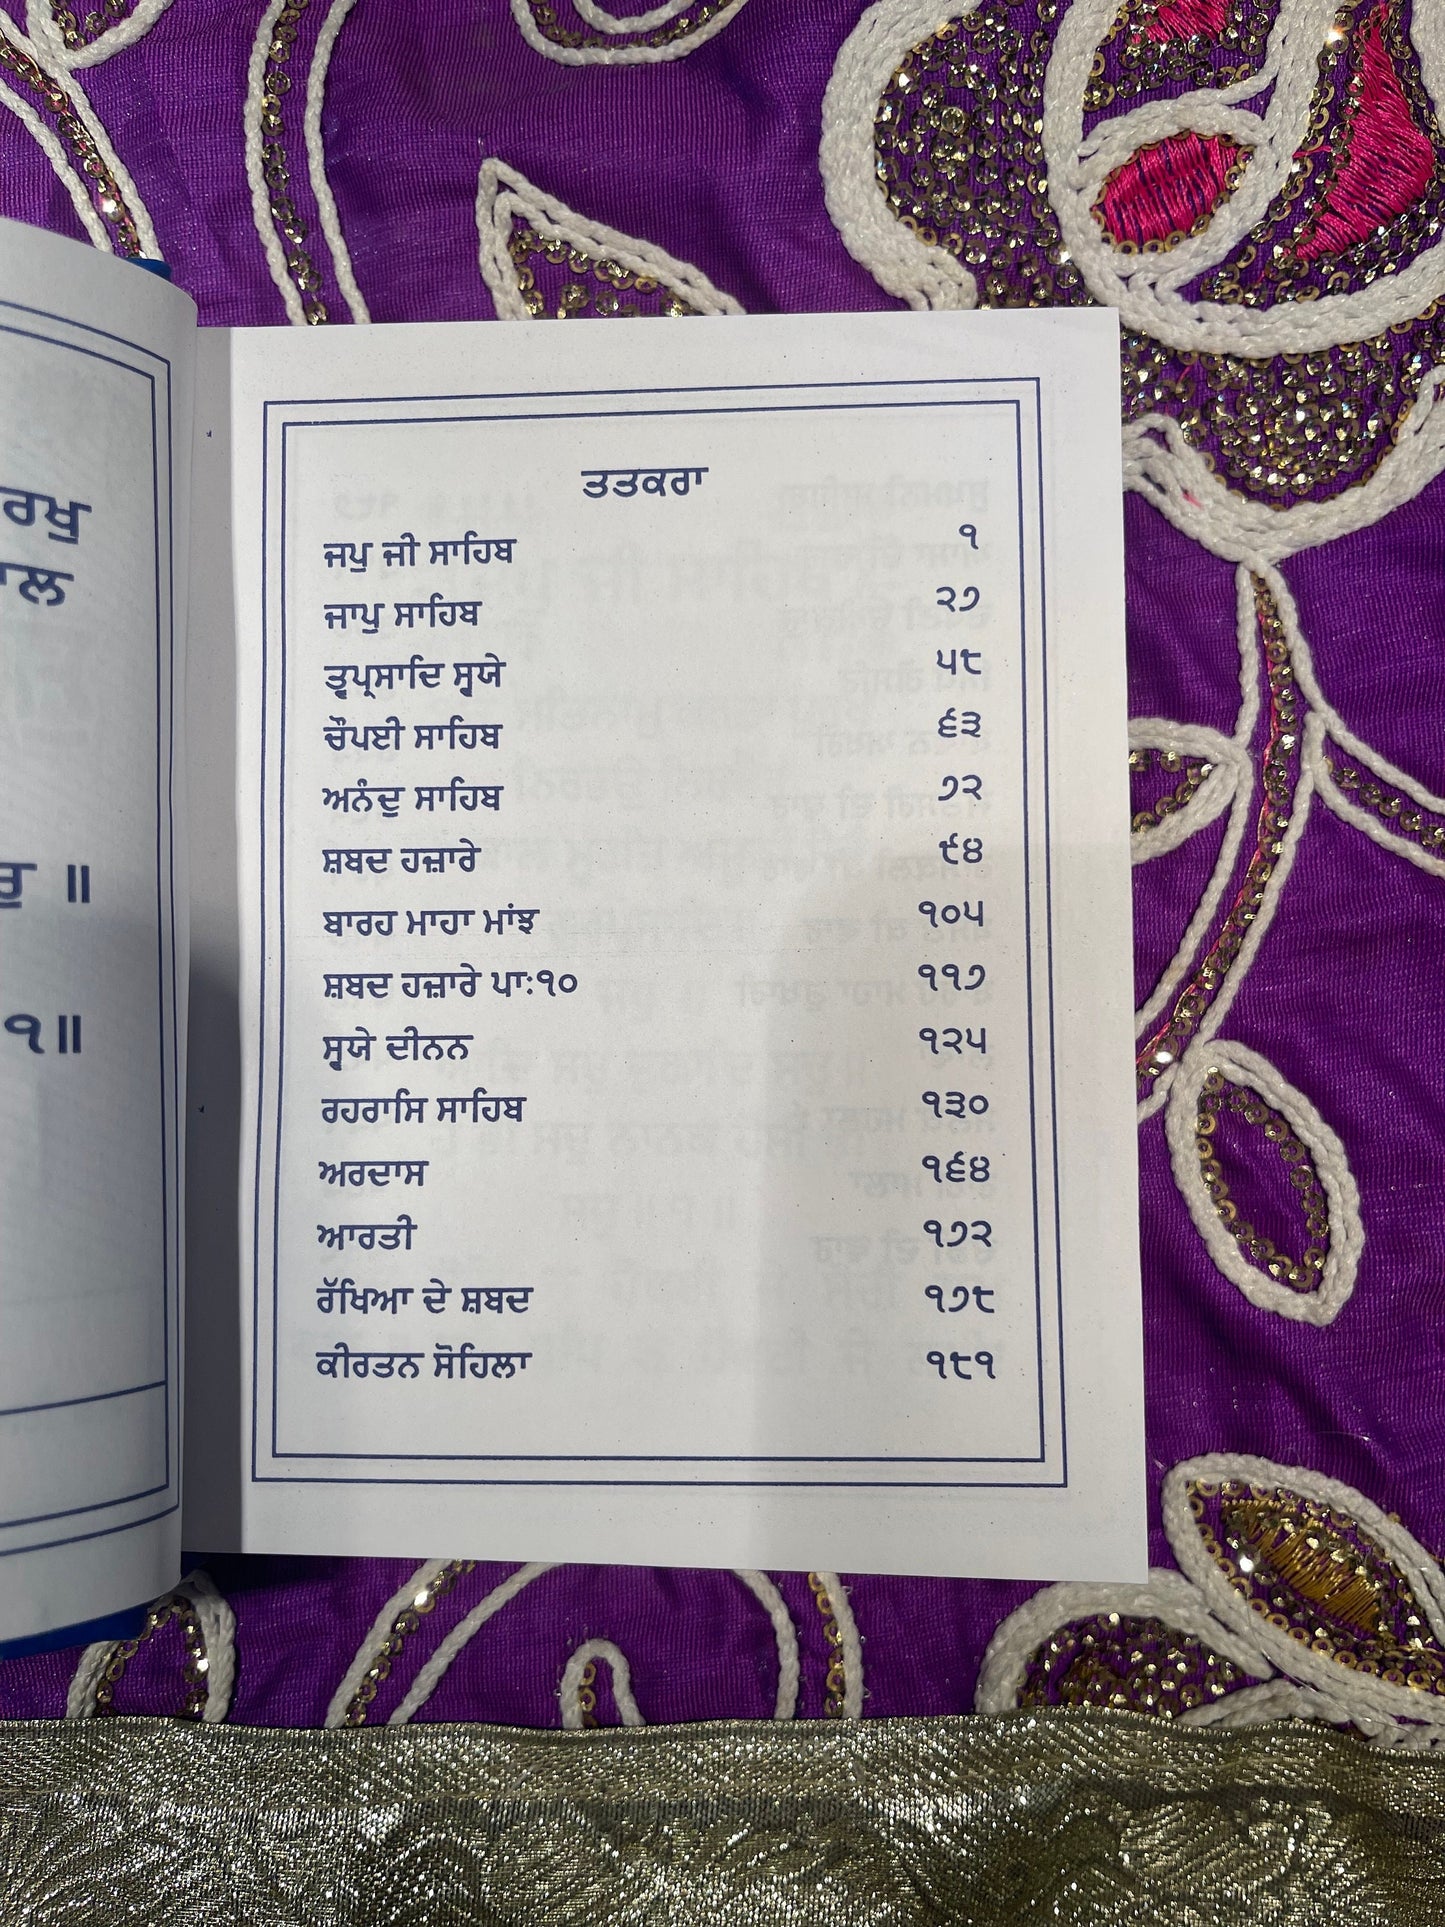 ਰਖੁ
ਾਲ
ਰੁ ॥
੧॥
ਤਤਕਰਾ
ਜਪੁ ਜੀ ਸਾਹਿਬ ੧
ਜਾਪੁ ਸਾਹਿਬ ੨੭
ਤ੍ਵਪ੍ਰਸਾਦਿ ਸ੍ਵਯੇ ੫੮
ਚੌਪਈ ਸਾਹਿਬ ੬੩
ਅਨੰਦੁ ਸਾਹਿਬ ੭੨
ਸ਼ਬਦ ਹਜ਼ਾਰੇ ੯੪
ਬਾਰਹ ਮਾਹਾ ਮਾਂਝ ੧੦੫
ਸ਼ਬਦ ਹਜ਼ਾਰੇ ਪਾ:੧੦ ੧੧੭
ਸ੍ਵਯੇ ਦੀਨਨ ੧੨੫
ਰਹਰਾਸਿ ਸਾਹਿਬ ੧੩੦
ਅਰਦਾਸ ੧੬੪
ਆਰਤੀ ੧੭੨
ਰੱਖਿਆ ਦੇ ਸ਼ਬਦ ੧੭੮
ਕੀਰਤਨ ਸੋਹਿਲਾ ੧੮੧